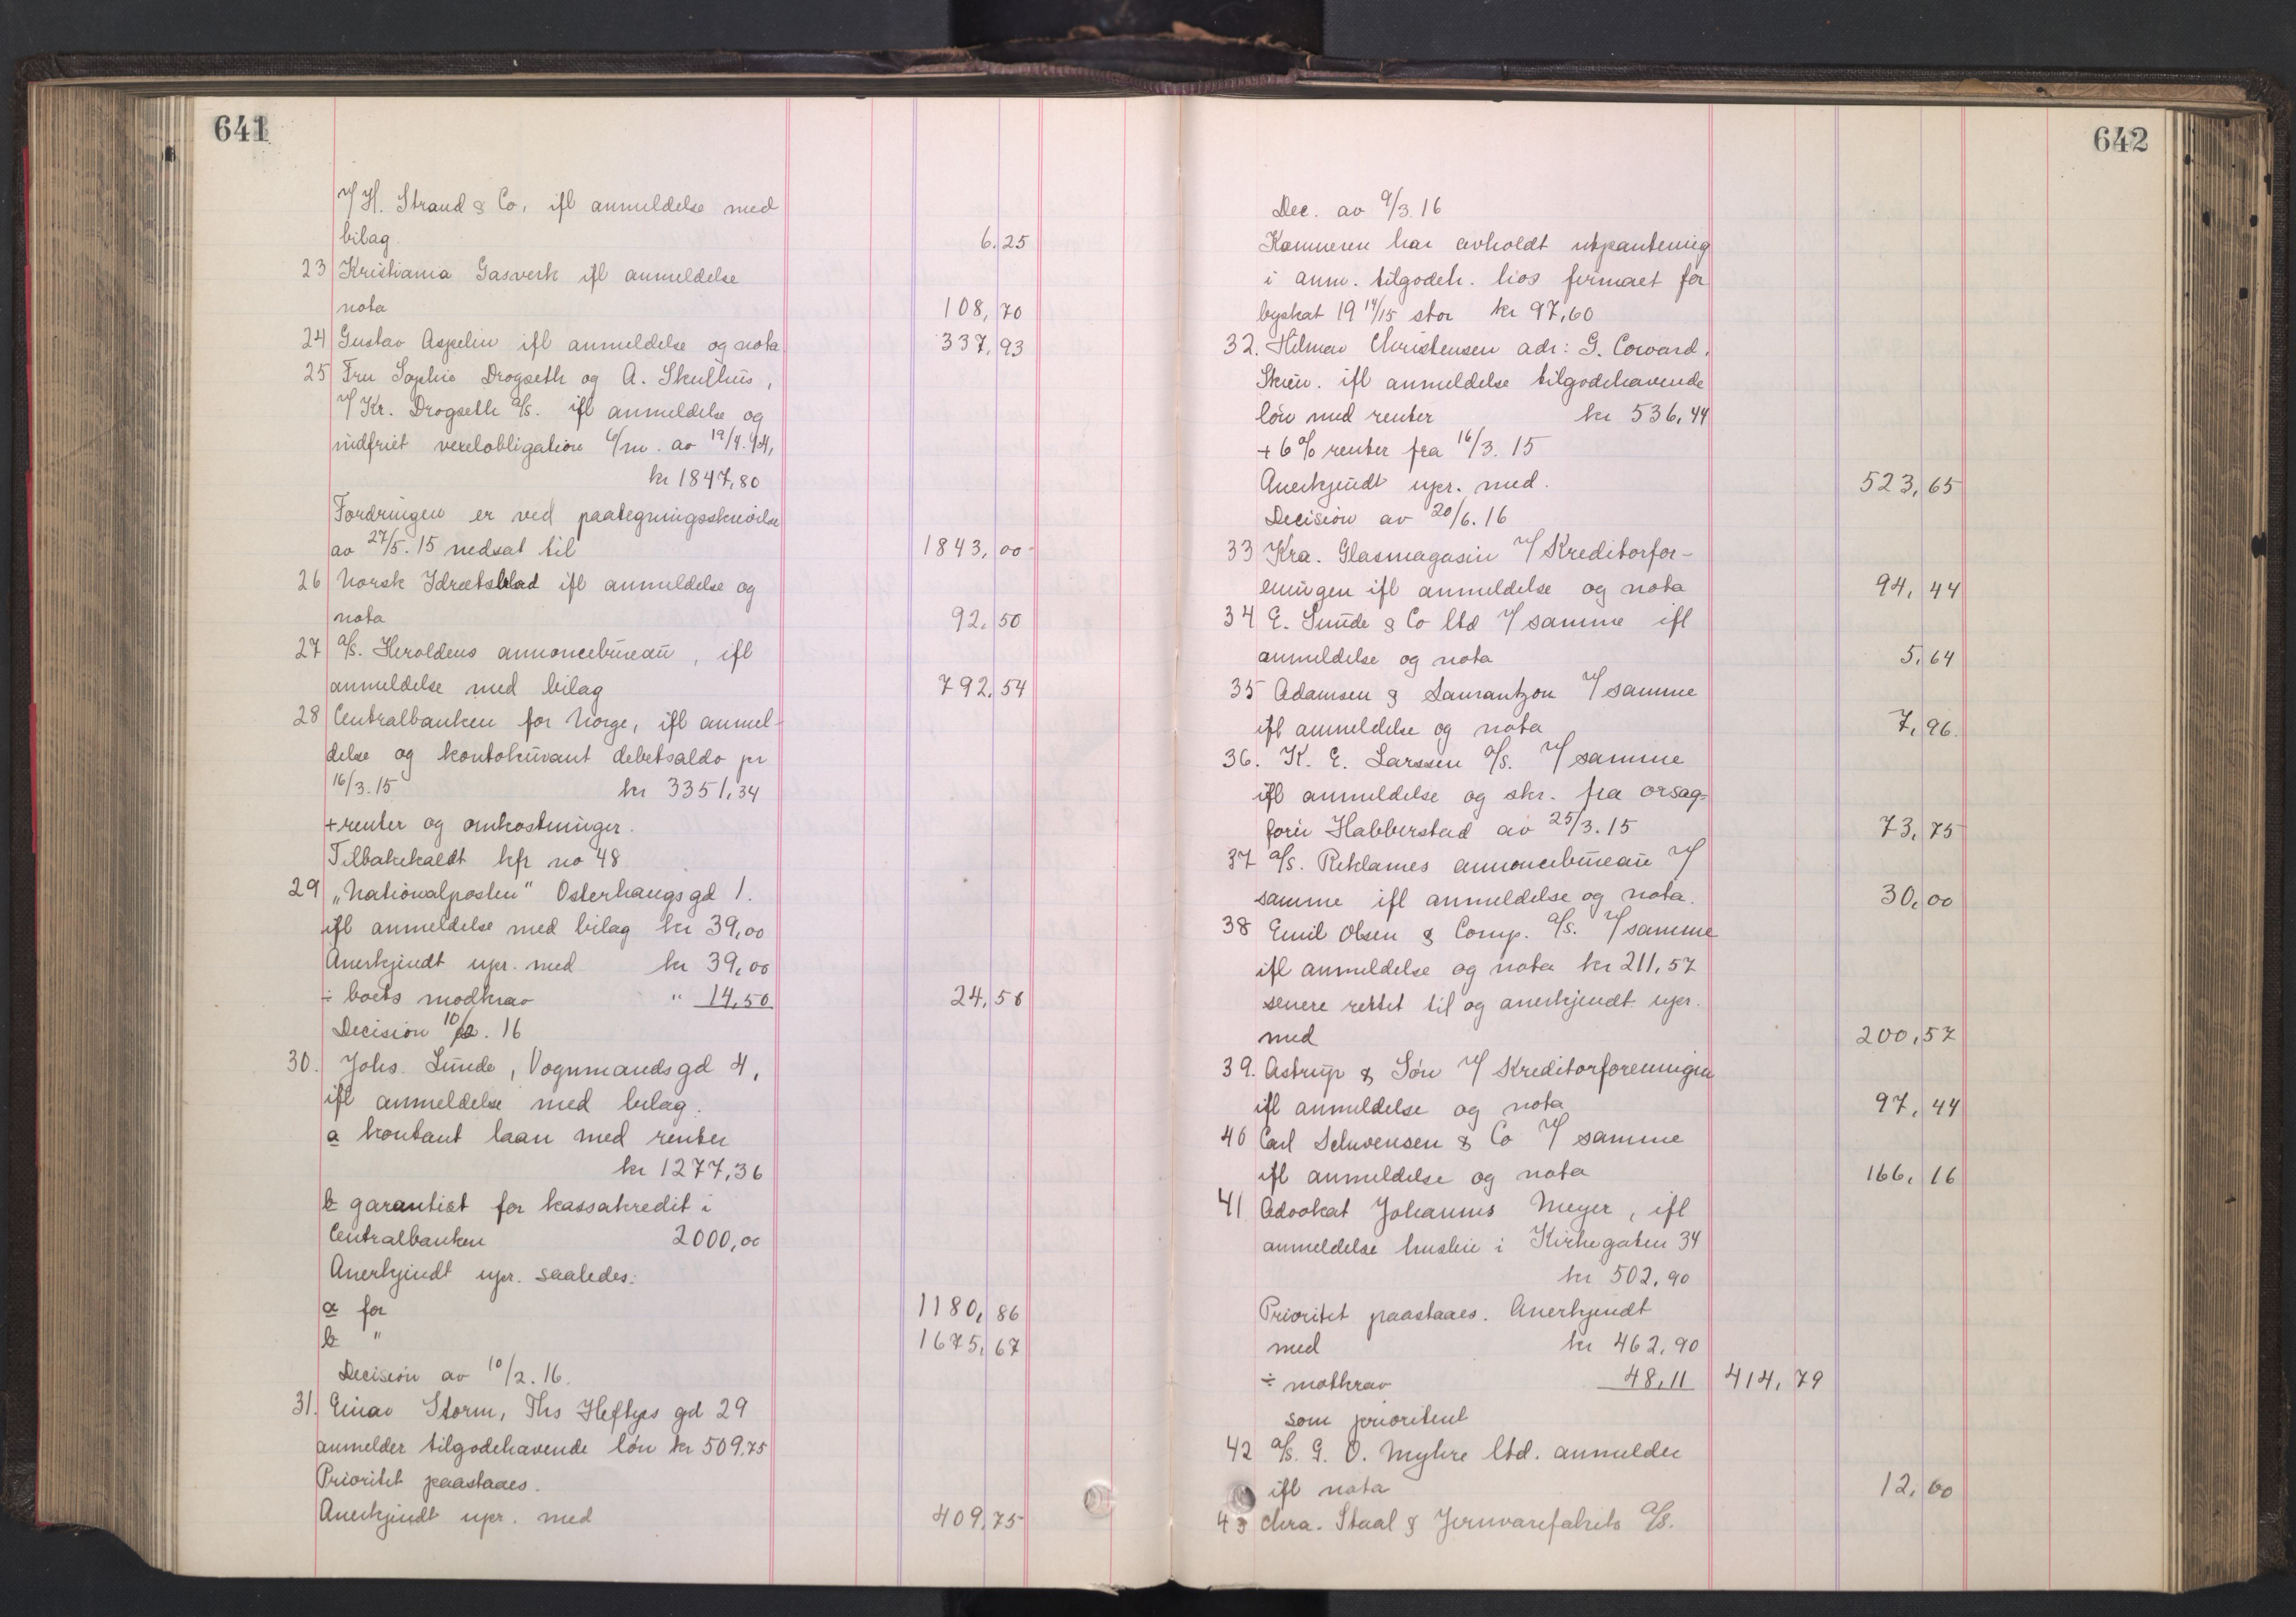 641
v/ H. Strand & Co, ifl anmeldelse med
bilag 6.25
23 Kristiania Gasverk ifl anmeldelse
nota 108,70
24 Gustav Aspelin ifl anmeldelse og nota 337,93
25 Fru Sophie Drogseth og A. Skulhus,
v/ Kr. Drogseth a/s. ifl anmeldelse og
indfriet vexelobligation 6/m. av 19/9.14,
kr 1847,80
Fordringen er ved paategningsskrivelse
av 27/5.15 nedsat til 1843,00
26 Norsk Idrætsblad ifl anmeldelse og
nota 92,50
27 a/s. Heroldens annoncebureau, ifl
anmeldelse med bilag 792,54
28 Centralbanken for Norge, ifl anmel-
delse og kontokurant debetsaldo pr
16/3.15 kr 3351,34
+ renter og omkostninger.
Tilbakekaldt kfr no 48
29 „Nationalposten" Osterhausgsgd 1.
ifl anmeldelse med bilag kr 39,00
Anerkjendt upr. med kr 39,00
÷ boets modkrav " 14,50 24,50
Decision 10/2.16
30. Johs. Lunde, Vognmandsgd 4,
ifl anmeldelse med bilag.
a kontant laan med renter
kr 1277,36
b garantist for kassakredit i
Centralbanken 2000,00
Anerkjendt upr. saaledes:
a for 1180,86
b " 1675,67
Decision av 10/2.16.
31. Einar Storm, Ths Heftyes gd 29
anmelder tilgodehavende løn kr 509,75
Prioritet paastaaes.
Anerkjendt upr. med 409,75
642
Dec. av 9/3.16
Kemneren har avholdt utpantning
i anm. tilgodeh. hos firmaet for
byskat 19 14/15 stor kr 97,60
32. Hilmar Christensen adr: G. Coward,
Skien. ifl anmeldelse tilgodehavende
løn med renter kr 536,44
+ 6% renter fra 16/3.15
Anerkjendt upr. med. 523,65
Decision av 20/6.16
33 Kra. Glasmagasin v/ Kreditorfor-
eningen ifl anmeldelse og nota 94,44
34 E. Sunde & Co ltd v/ samme ifl
anmeldelse og nota 5,64
35 Adamsen & Laurantzon v/ samme
ifl anmeldelse og nota 7,96.
36. K. E. Larssen a/s. v/ samme
ifl anmeldelse og skr. fra orsag-
fører Habberstad av 25/3.15 73,75
37 a/s. Reklames annoncebureau v/
samme ifl anmeldelse og nota. 30,00
38 Emil Olsen & Comp. a/s. v/ samme
ifl anmeldelse og nota kr 211,57
senere rettet til og anerkjendt upr.
med 200,57
39. Astrup & Søn v/ Kreditorforeningen
ifl anmeldelse og nota 97,44
40 Carl Schwensen & Co v/ samme
ifl anmeldelse og nota 166,16
41 Advokat Johannes Meyer, ifl
anmeldelse husleie i Kirkegaten 34
kr 502,90
Prioritet paastaaes. Anerkjendt
med kr 462,90
÷ motkrav 48,11 414,79
som prioritert
42 a/s. G. O. Myhre ltd. anmelder
ifl nota 12,00
43 Chra. Staal & Jernvarefabrik a/s.